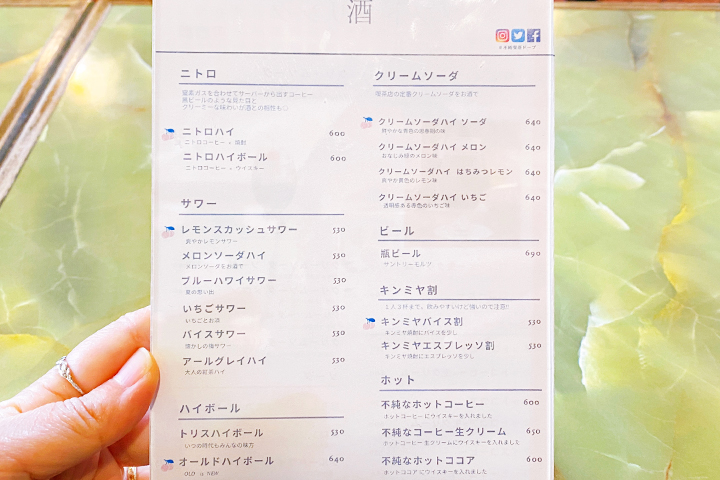 酒
ニトロ
窒素ガスを合わせてサーバーから出すコーヒー
黒ビールのような見た目と
クリーミーな味わいが酒との相性も◎
ニトロハイ 600
ニトロコーヒー × 焼酎
ニトロハイボール 600
ニトロコーヒー × ウイスキー
サワー
レモンスカッシュサワー 530
爽やかレモンサワー
メロンソーダハイ 530
メロンソーダをお酒で
ブルーハワイサワー 530
夏の思い出
いちごサワー 530
いちごとお酒
バイスサワー 530
懐かしの梅サワー
アールグレイハイ 530
大人の紅茶ハイ
ハイボール
トリスハイボール 530
いつの時代もみんなの味方
オールドハイボール 640
OLD is NEW
クリームソーダ
喫茶店の定番クリームソーダをお酒で
クリームソーダハイ ソーダ 640
クリームソーダハイ メロン 640
おなじみ緑のメロン味
クリームソーダハイ はちみつレモン 640
爽やか黄色のレモン味
クリームソーダハイ いちご 640
透明感ある赤色のいちご味
ビール
瓶ビール 690
サントリーモルツ
キンミヤ割
1人3杯まで、飲みやすいけど強いので注意!!
キンミヤバイス割 530
キンミヤ焼酎にバイスを少し
キンミヤエスプレッソ割 530
キンミヤ焼酎にエスプレッソを少し
ホット
不純なホットコーヒー 600
ホットコーヒー にウイスキーを入れました
不純なコーヒー生クリーム 650
ホットコーヒー 生クリームにウイスキーを入れました
不純なホットココア 600
ホットココア にウイスキーを入れました